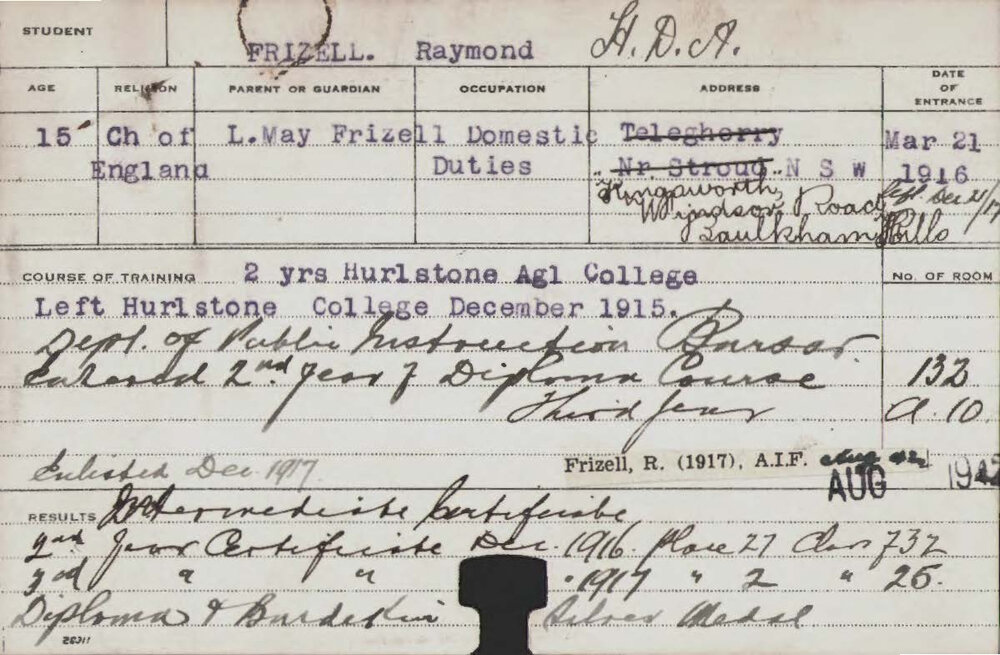 STUDENT
FRIZELL. Raymond H. D. A.
AGE RELIGION PARENT OR GUARDIAN OCCUPATION ADDRESS DATE OF ENTRANCE
15 Ch of L.May Frizell Domestic Telegherry Mar 21
England Duties Nr. Stroud N S W 1916
Kingsworth, Left Dec 21/17
Windsor Road
Baulkham Hills
COURSE OF TRAINING 2 yrs Hurlstone Agl College No. OF ROOM
Left Hurlstone College December 1915.
Dept. of Public Instruction Bursar.
Entered 2nd. Year of Diploma Course 132
Third Year A. 10
Enlisted Dec. 1917.
Frizell, R. (1917), A.I.F.
AUG 1942
RESULTS Intermediate Certificate
2nd Year Certificate Dec. 1916. Place 27 Class 732
3rd " " " 1917 " 2 " 25.
Diploma & Burdekin Silver Medal